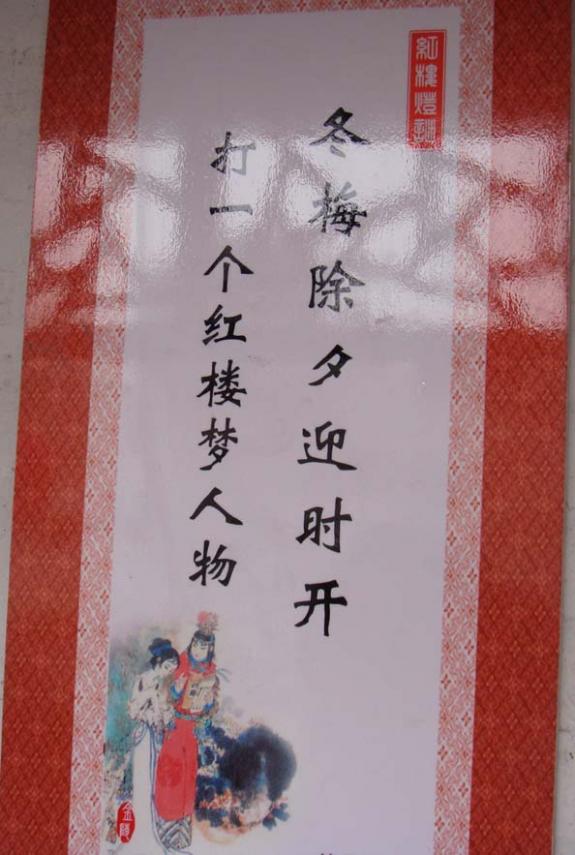 紅樓燈謎
冬梅除夕迎时开
打一个红楼梦人物
金陵